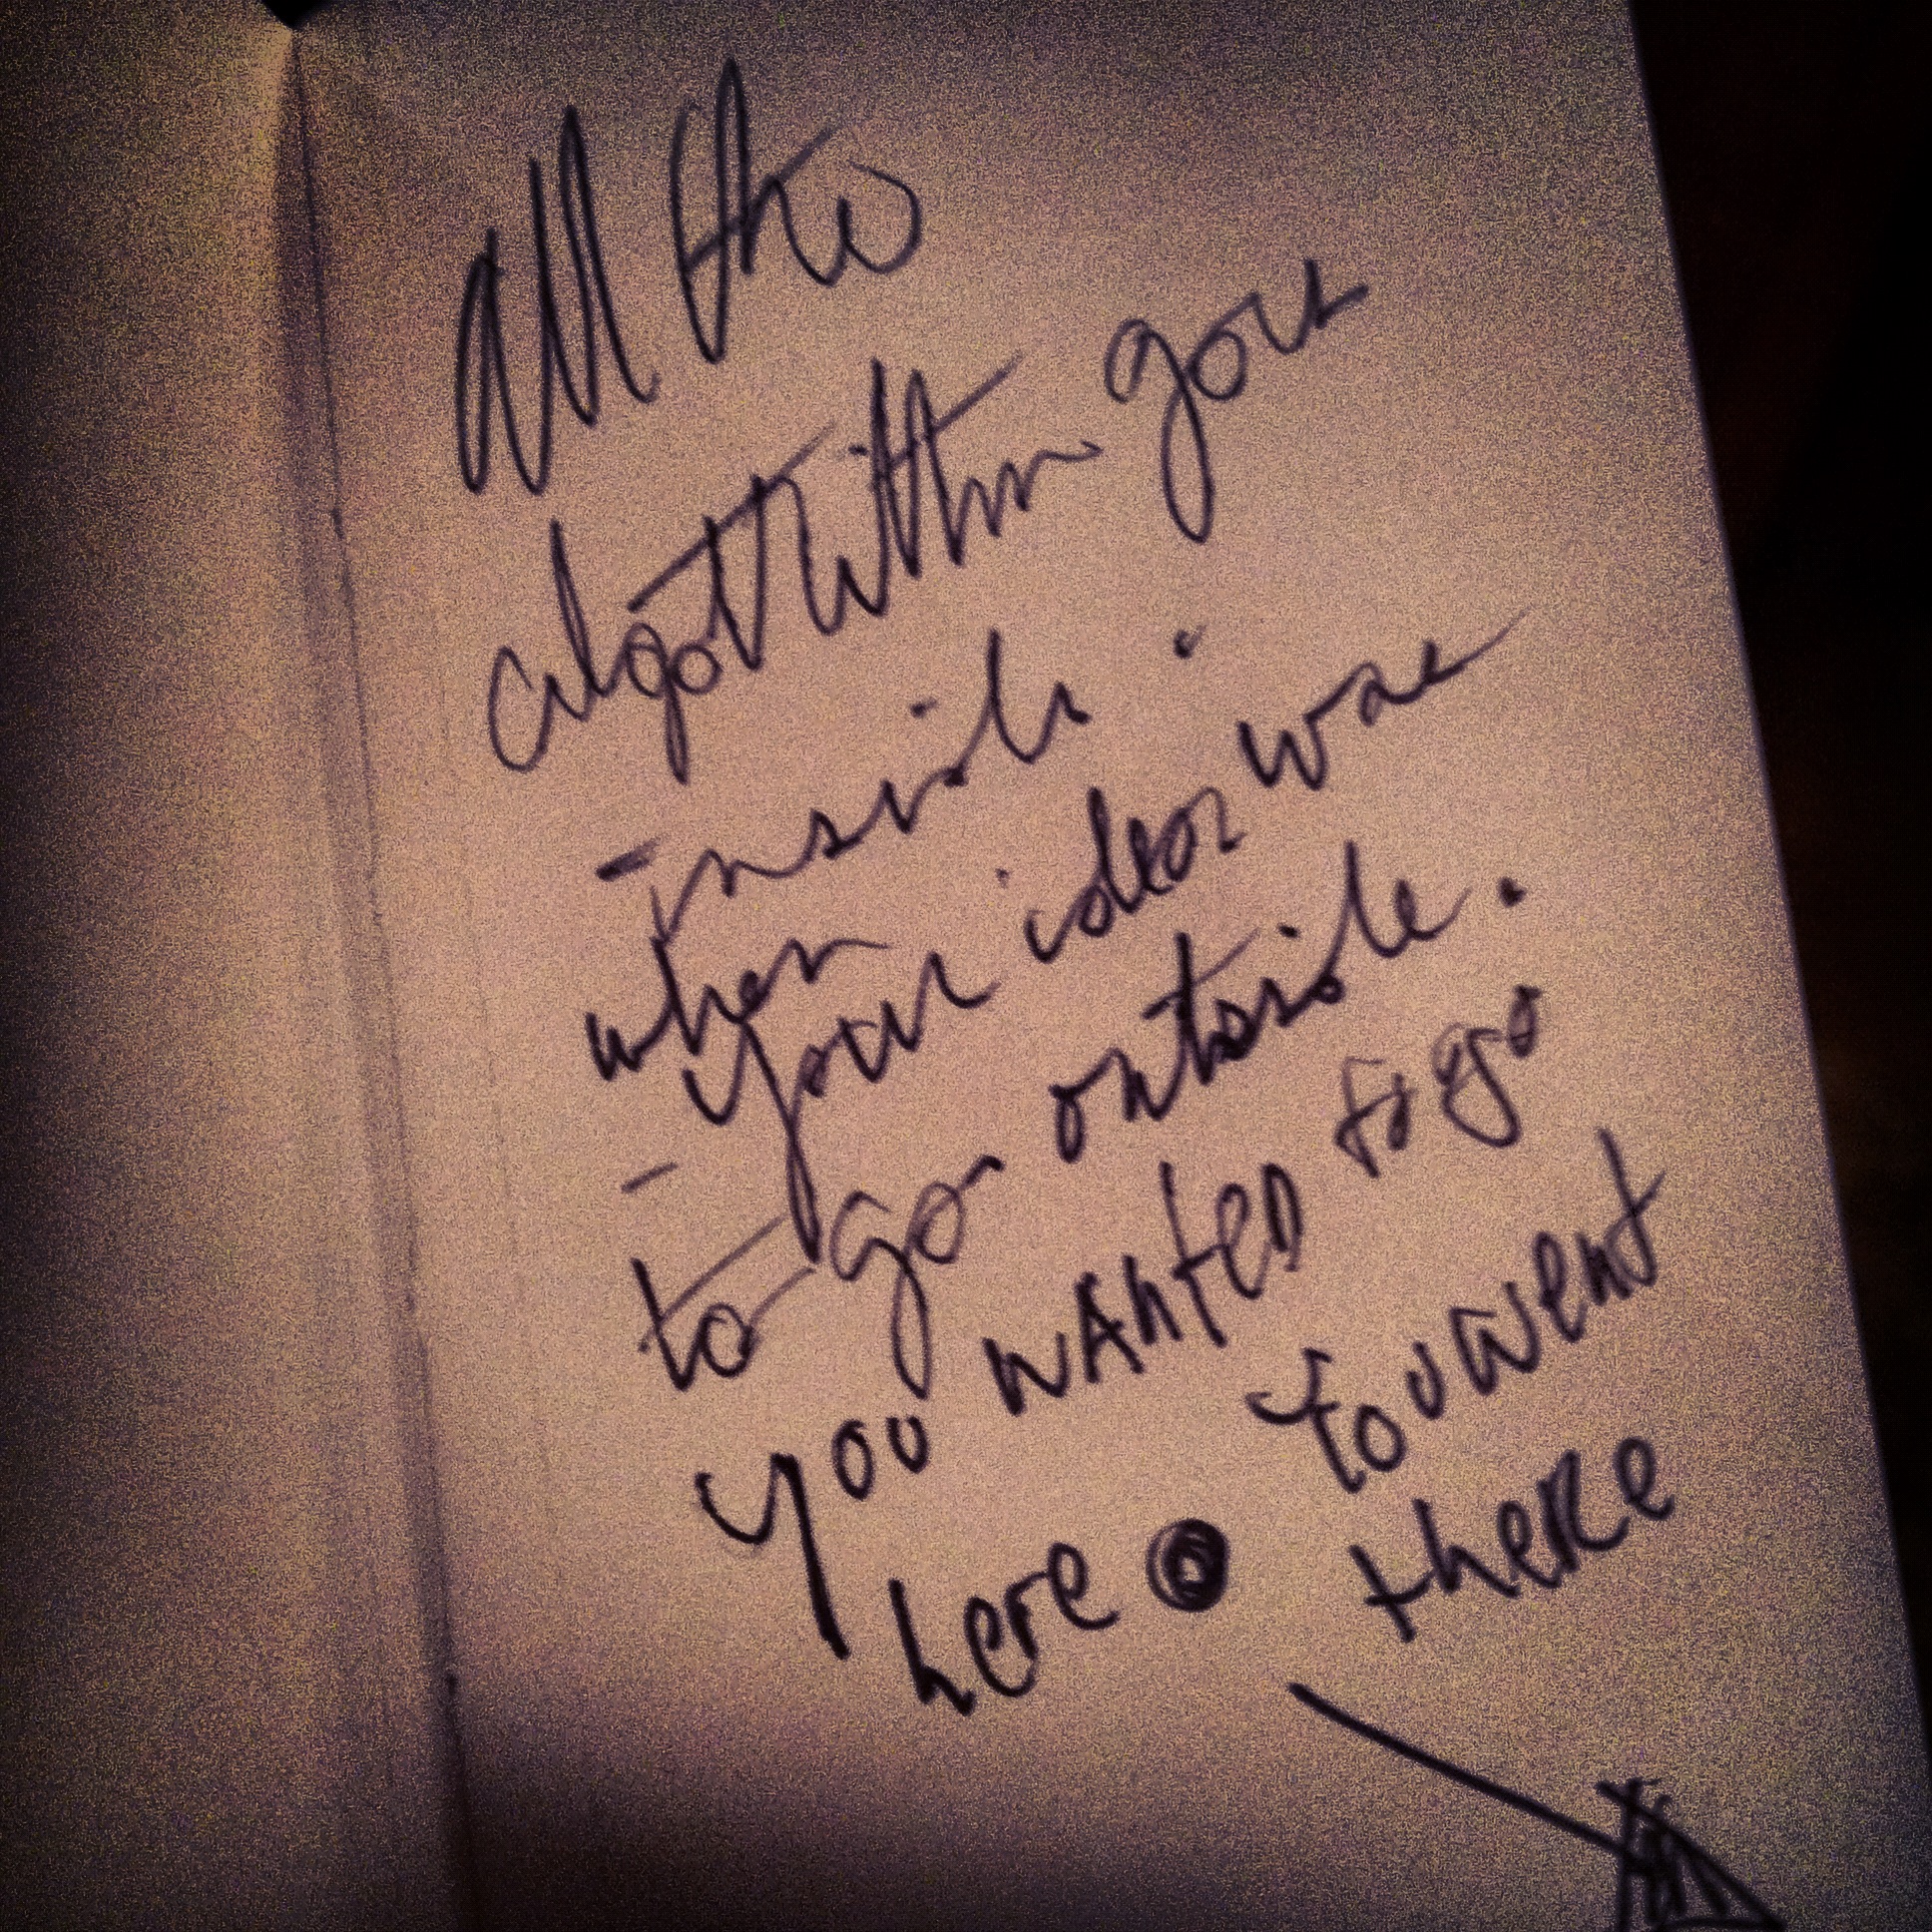 all the
algorithm goes
inside
when
your ideas was
to go outside.
you wanted to go
here to u went
there